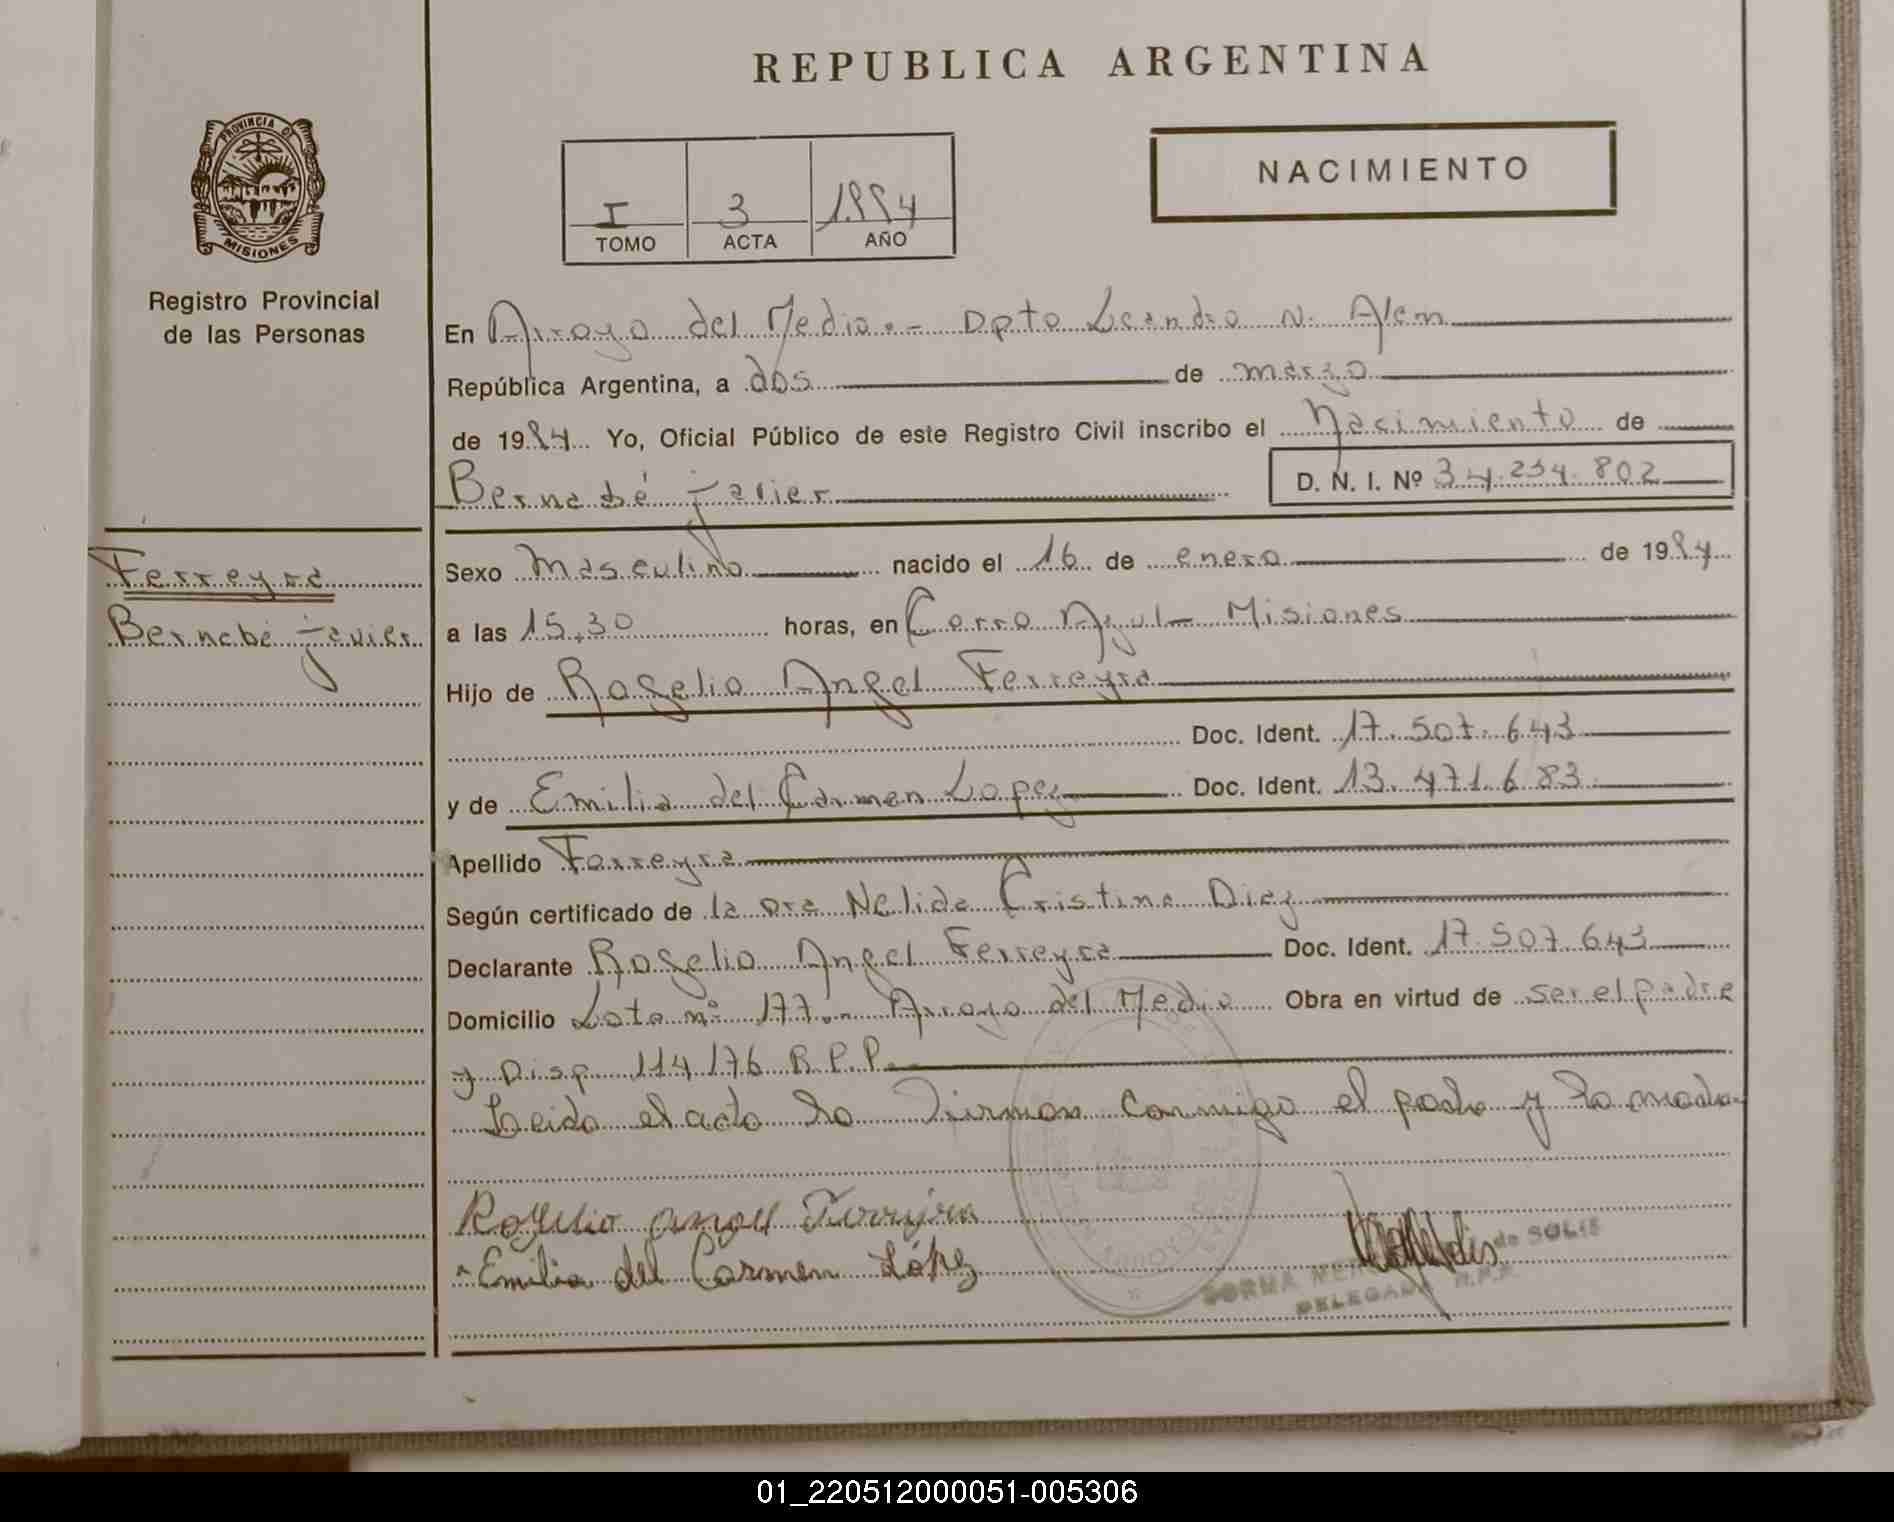 REPUBLICA ARGENTINA
PROVINCIA DE
MISIONES
Registro Provincial
de las Personas
I 3 1984
TOMO ACTA AÑO
NACIMIENTO
En Arroyo del Medio.- Dpto Leandro N. Alem
República Argentina, a dos de marzo
de 1984 Yo, Oficial Público de este Registro Civil inscribo el Nacimiento de
Bernabé Javier D. N. I. Nº 34.234.802
Ferreyra
Bernabé Javier
Sexo Masculino nacido el 16 de enero de 1984
a las 15,30 horas, en Cerro Azul - Misiones
Hijo de Rogelio Angel Ferreyra
Doc. Ident. 17.507.643
y de Emilia del Carmen Lopez Doc. Ident. 13.471.683
Apellido Ferreyra
Según certificado de la Dra Nelida Cristina Diez
Declarante Rogelio Angel Ferreyra Doc. Ident. 17.507.643
Domicilio Lote nº 177.- Arroyo del Medio Obra en virtud de ser el padre
y Disp. 114/76 R.P.P.
Leida el acta la firman conmigo el padre y la madre
Rogelio angel Ferreyra
Emilia del Carmen López
de SOLIS
DELEGADA R.P.P.
01_220512000051-005306